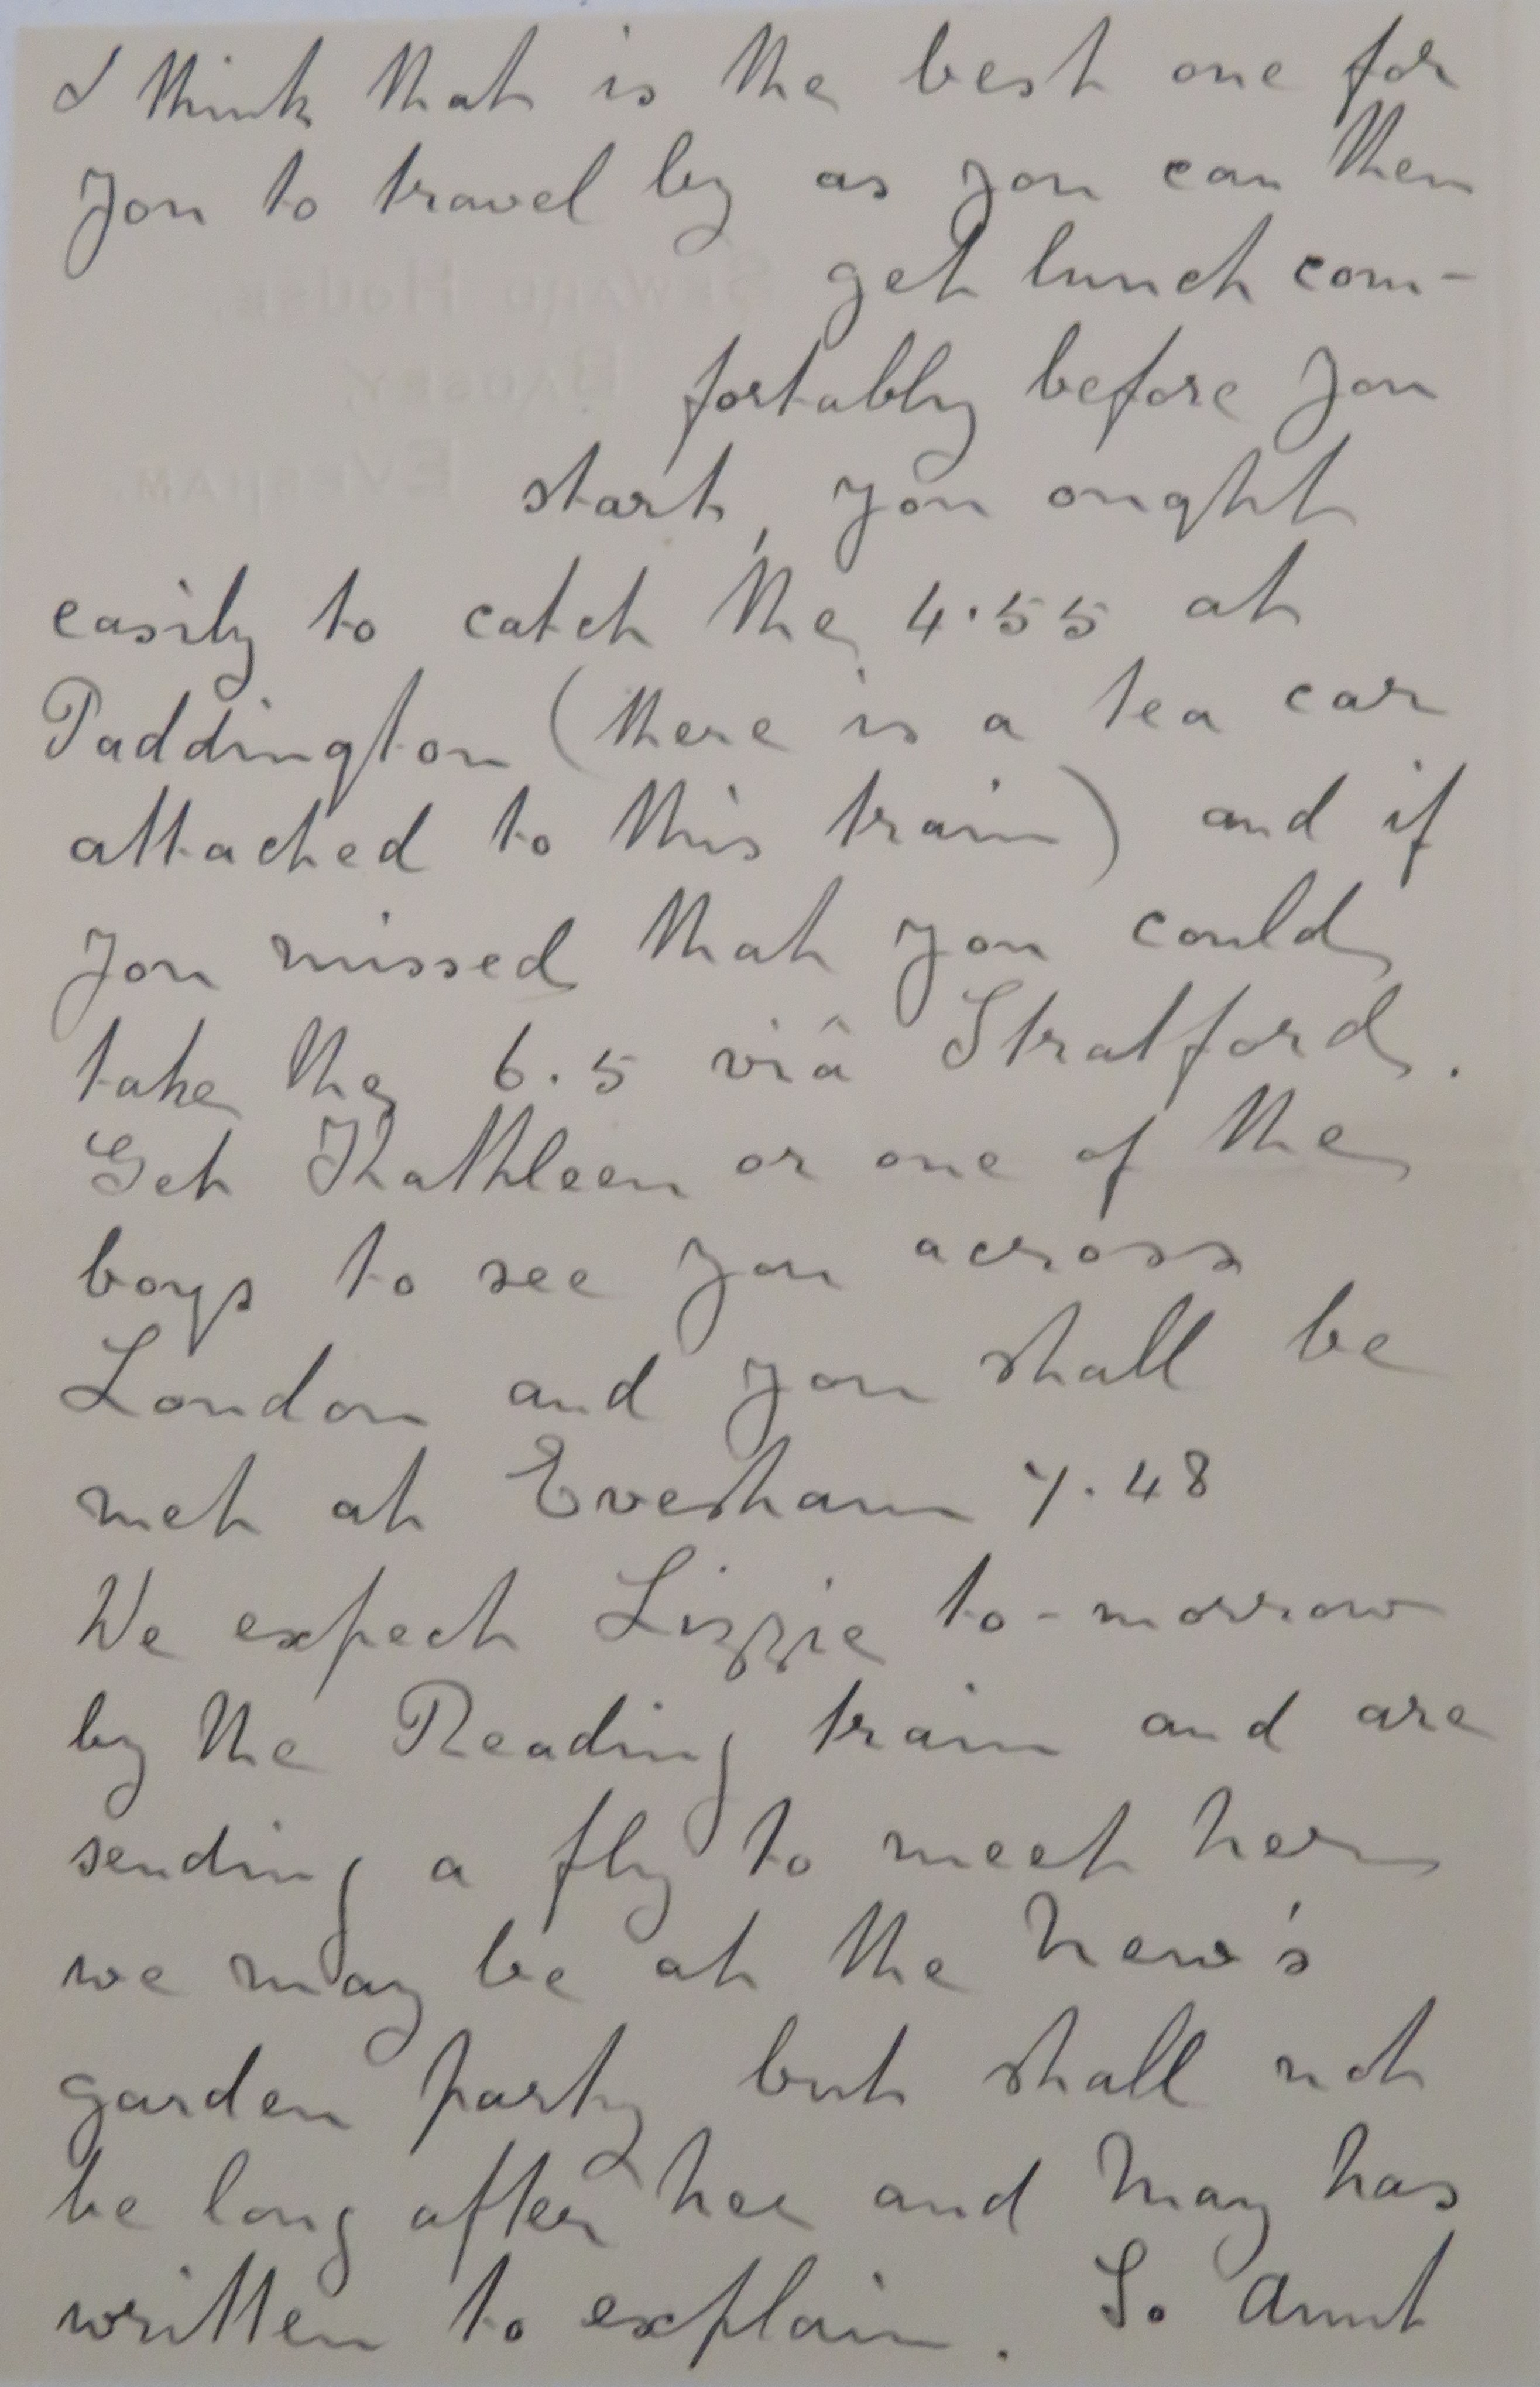 I think that is the best one for
you to travel by as you can then
get lunch com-
fortably before you
start, you ought
easily to catch the 4.55 at
Paddington (there is a tea car
attached to this train) and if
you missed that you could
take the 6.5 viâ Stratford.
Get Kathleen or one of the
boys to see you across
London and you shall be
met at Evesham 7.48
We expect Lizzie to-morrow
by the Reading train and are
sending a fly to meet her
we may be at the New's
garden party but shall not
be long after her and May has
written to explain. So Aunt
SEWARD HOUSE
BADSEY
EVESHAM.